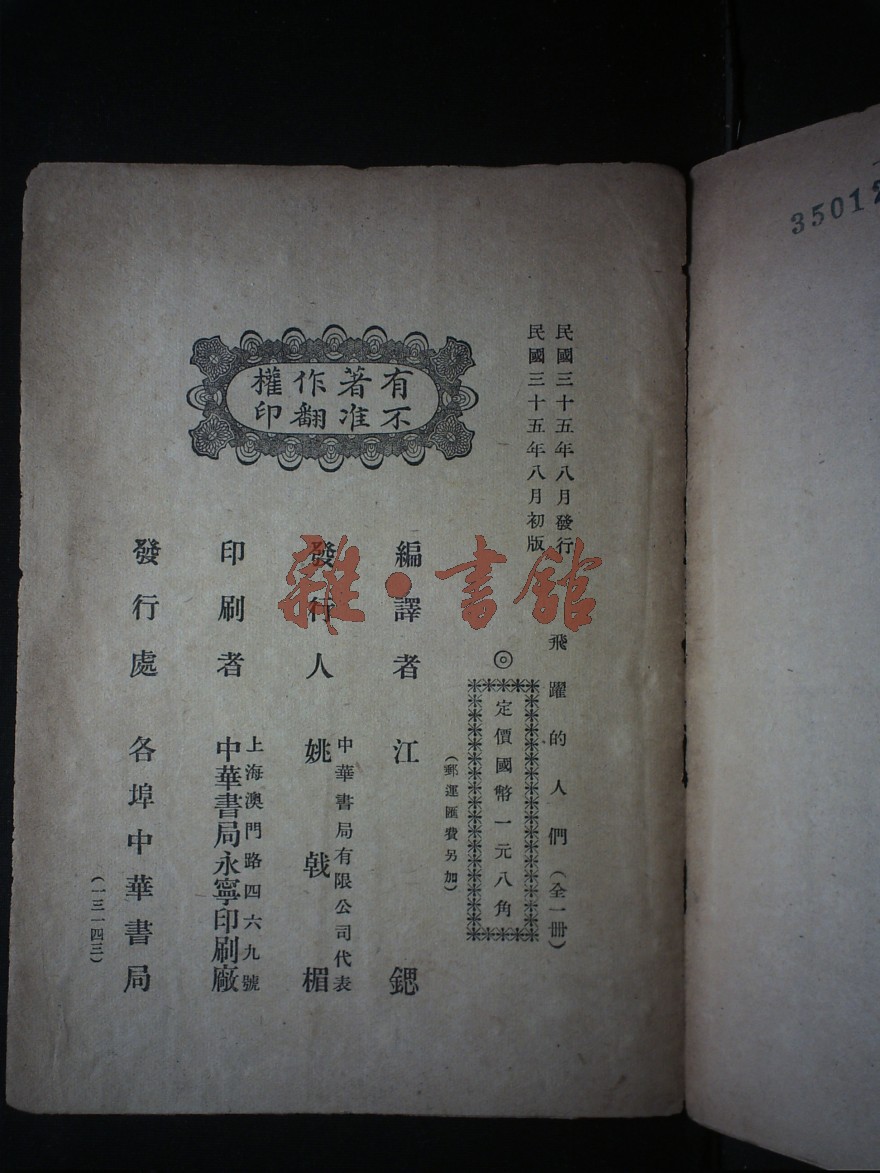 民國三十五年八月發行
民國三十五年八月初版
飛躍的人們(全一冊)
◎
定價國幣一元八角
(郵運匯費另加)
有著作權
不准翻印
編譯者 江鍶
發行人 中華書局有限公司代表
姚戟楣
印刷者 上海澳門路四六九號
中華書局永寧印刷廠
發行處 各埠中華書局
(一三一四三)
雜·書館
35012